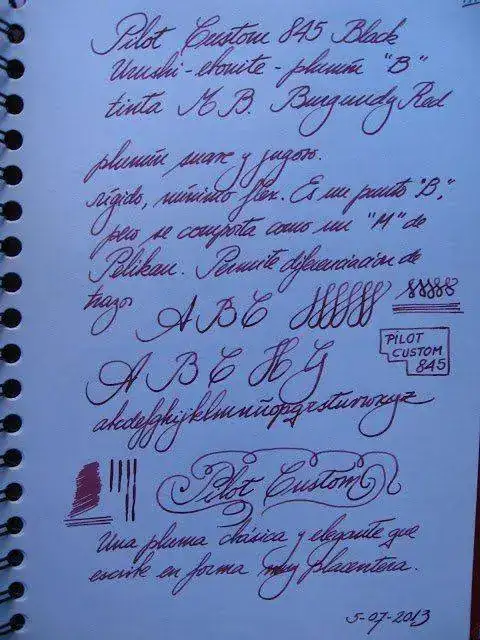 Pilot Custom 845 Black
Urushi - ebonite - plumín "B"
tinta M B. Burgundy Red
plumín suave y jugoso.
rígido, mínimo flex. Es un punto "B",
pero se comporta como un "M" de
Pelikan. Permite diferenciación de
trazos
A B C
PILOT
CUSTOM
845
A B C H G
abcdefghijklmnñopqrstuvwxyz
Pilot Custom
Una pluma clásica y elegante que
escribe en forma muy placentera.
5-07-2013